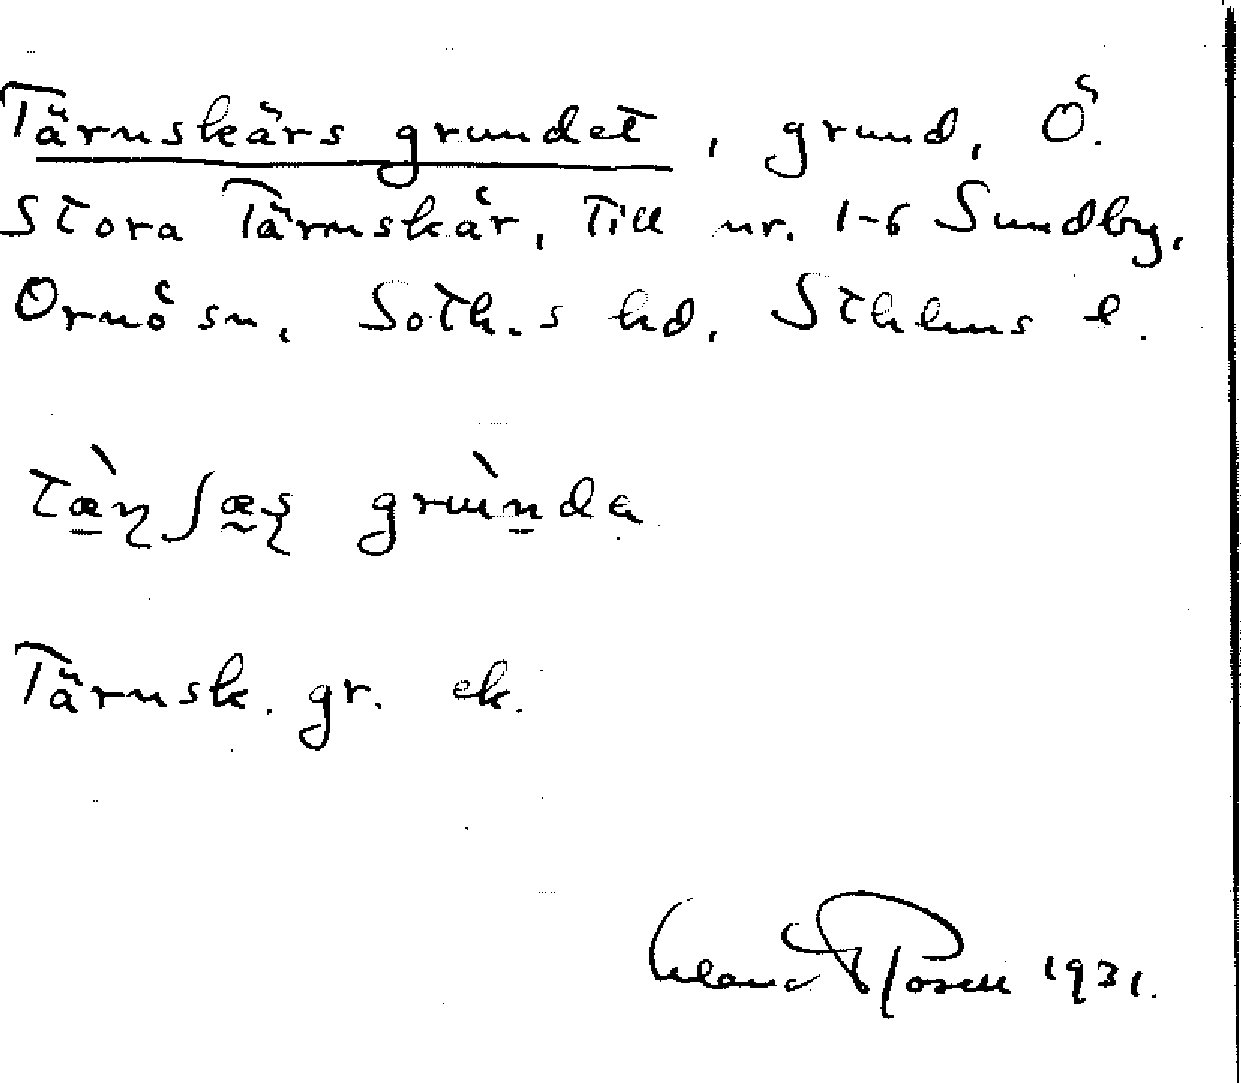 Tärnskärs grundet, grund, Ö.
Stora Tärnskär, Till nr. 1-6 Sundby,
Ornö sn, Soth.s hd, Sthlms l.
grùnda
Tärnsk. gr. ek.
1931.